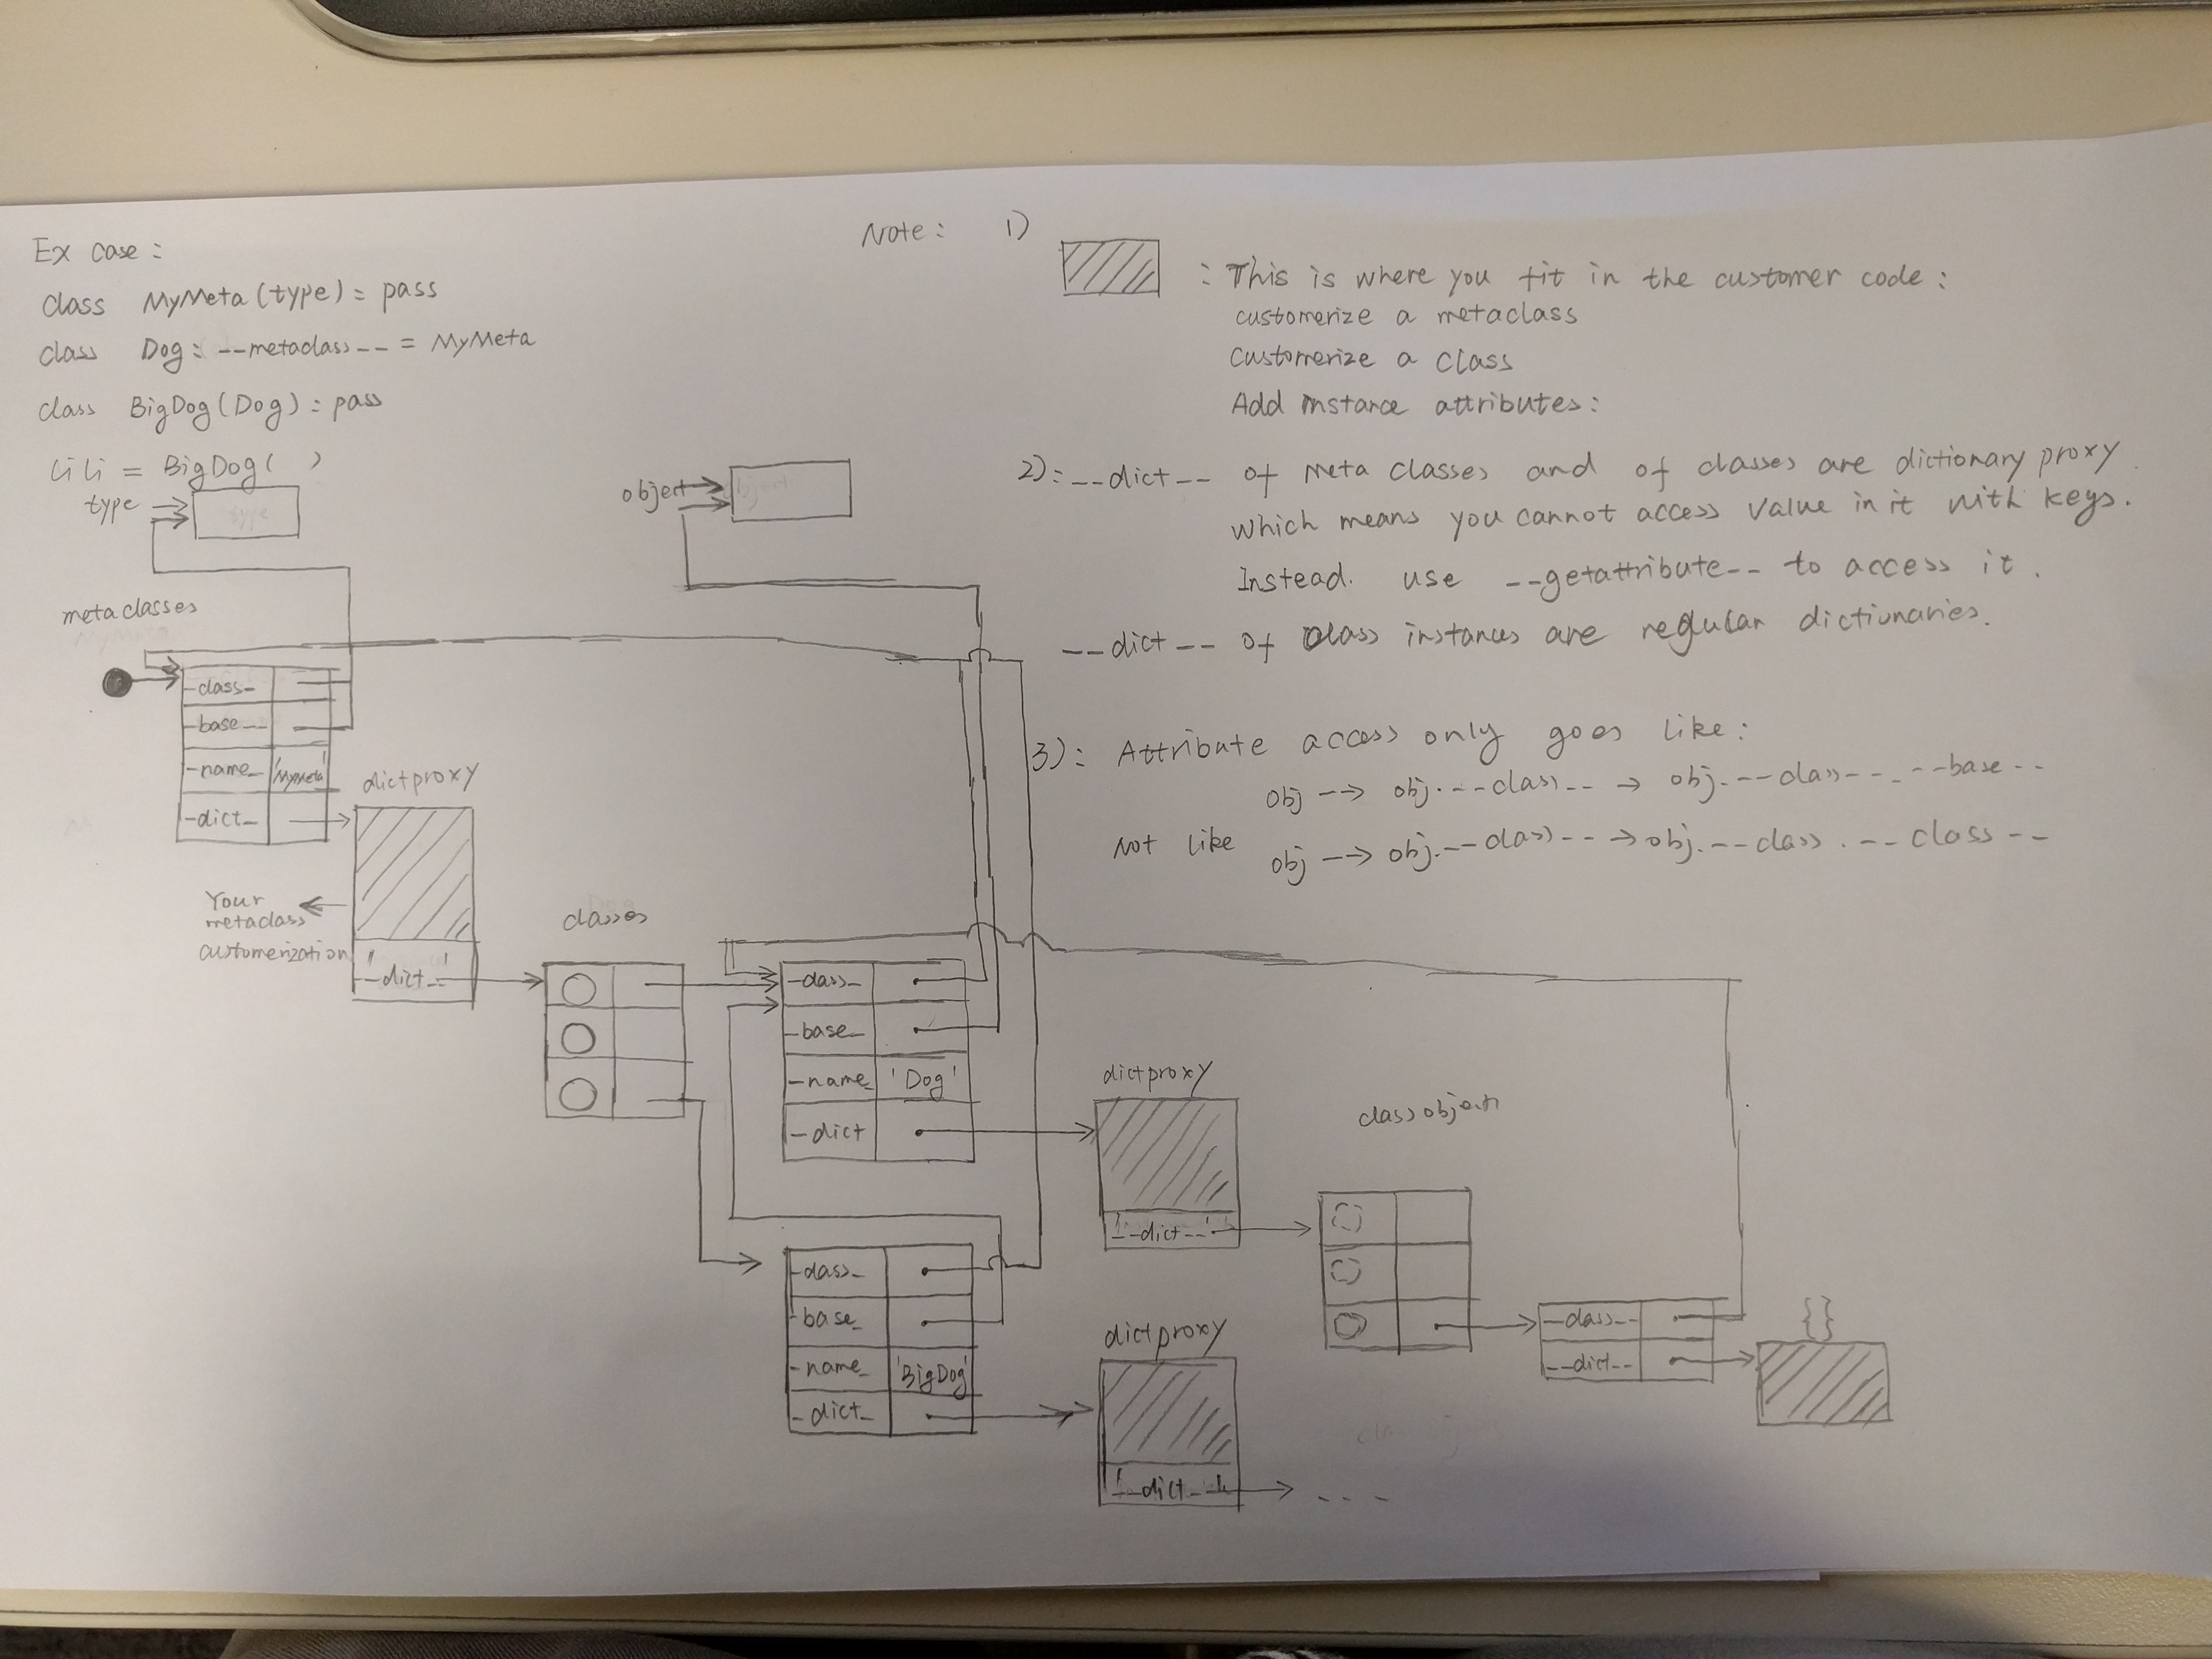 Ex case :
class MyMeta (type) : pass
class Dog : __metaclass__ = MyMeta
class BigDog (Dog) : pass
LiLi = BigDog( )
type
object
Note : 1)
: This is where you fit in the customer code :
customerize a metaclass
Customerize a class
Add instance attributes :
2) : __dict__ of meta classes and of classes are dictionary proxy.
which means you cannot access value in it with keys.
Instead. use __getattribute__ to access it .
__dict__ of class instances are regular dictionaries.
3) : Attribute access only goes like :
obj --> obj.__class__ -> obj.__class__.__base__
Not like obj --> obj.__class__ -> obj.__class.__class__
metaclasses
_class_
_base__
_name_ 'MyMeta'
_dict_
dictproxy
Your
metaclass
customerization
'__dict__'
classes
_class_
_base_
_name_ 'Dog'
_dict
dictproxy
'__dict__'
class objects
_class_
_base_
_name_ 'BigDog'
_dict_
dictproxy
'__dict__'
...
__class__
__dict__
{}